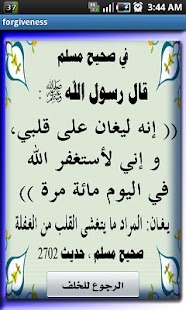 37 3:44 AM
forgiveness
في صحيح مسلم
قال رسول الله ﷺ :
(( إنه ليغان على قلبي،
و إني لأستغفر الله
في اليوم مائة مرة ))
يغان: المراد ما يتغشى القلب من الغفلة
صحيح مسلم ، حديث 2702
الرجوع للخلف